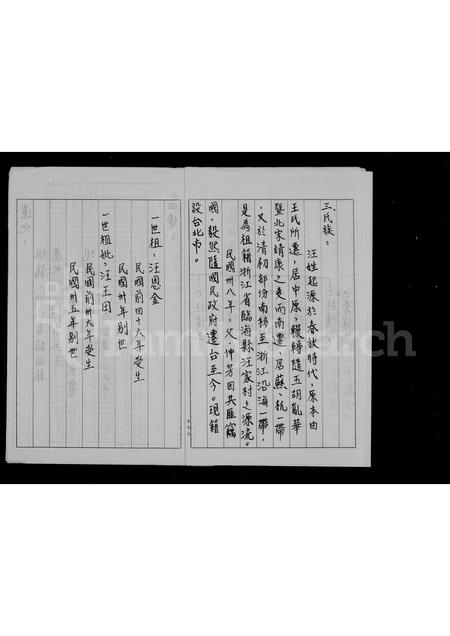 三、氏族：
汪姓起源於春秋時代，原本由
王氏所遷，居中原，輾轉隨五胡亂華
暨北宋靖康之變而南遷，居蘇、杭一帶
，又於清初部份南移至浙江沿海一帶，
是為祖籍浙江省臨海縣汪家村之源流。
民國卅八年，父仲芳因共匪竊
國，毅然隨國民政府遷台至今。現籍
設台北市。
一世祖：汪恩金
民國前四十六年受生
民國卅年别世
一世祖妣：汪王
民國前卅六年受生
民國卅五年别世